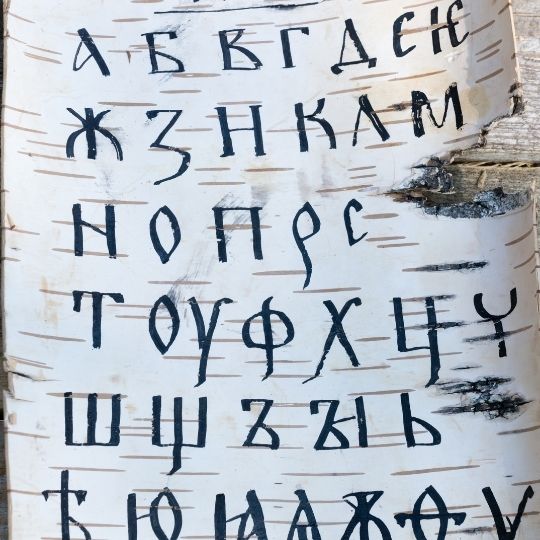 А Б В Г Д Є Ѥ
Ж З И К Л М
Н О П Р С
Т ОУ Ф Х Ц Ч
Ш Щ Ъ ЪИ Ь
Ѣ Ю Ꙗ Ѧ Ѫ Ѳ Ѵ